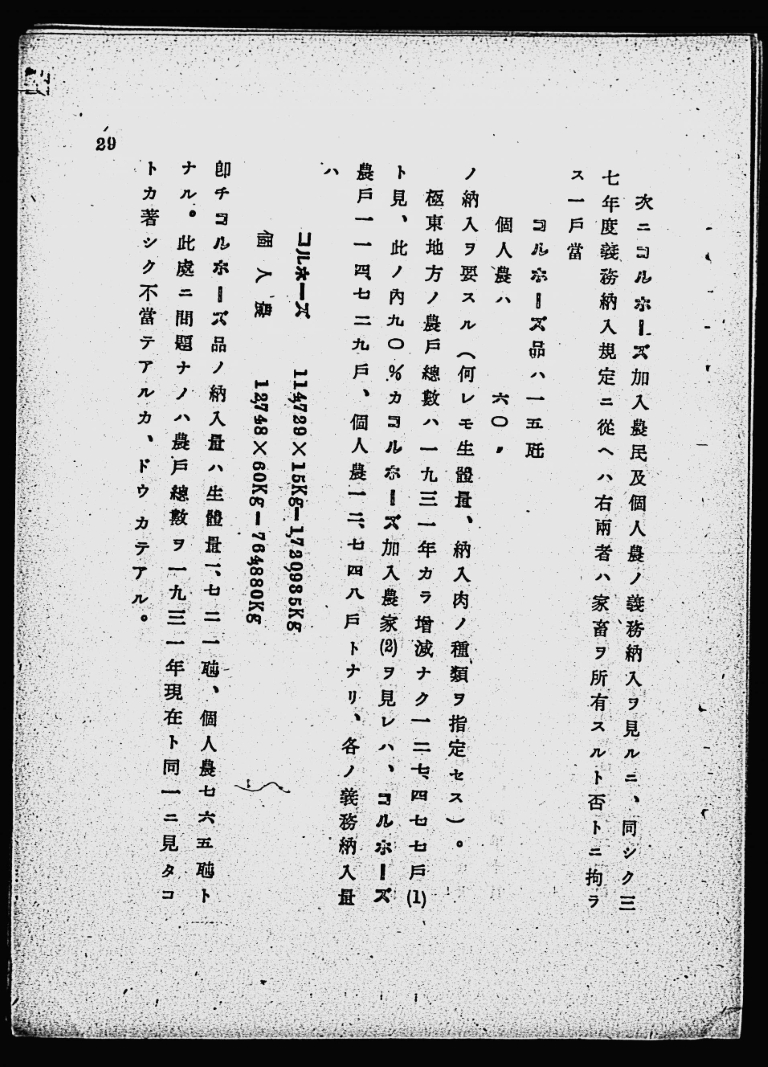 次ニコルホーズ加入農民及個人農ノ義務納入ヲ見ルニ、同シク三
七年度義務納入規定ニ從ヘハ右兩者ハ家畜ヲ所有スルト否トニ拘ラ
ス一戸當
コルホーズ品ハ一五瓩
個人農ハ 六〇〃
ノ納入ヲ要スル(何レモ生體量、納入肉ノ種類ヲ指定セス)。
極東地方ノ農戸總數ハ一九三一年カラ增減ナク一二七、四七七戸(1)
ト見、此ノ內九〇%カコルホーズ加入農家(2)ヲ見レハ、コルホーズ
農戸一一四、七二九戸、個人農一二、七四八戸トナリ、各ノ義務納入量
ハ
コルホーズ 114,729×15Kg=1,720,985Kg
個人農 12,748×60Kg=764,880Kg
卽チコルホーズ品ノ納入量ハ生體量一、七二一瓲、個人農七六五瓲ト
ナル。此處ニ問題ナノハ農戸總數ヲ一九三一年現在ト同一ニ見タコ
トカ著シク不當テアルカ、ドウカテアル。
29